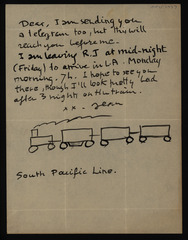 Dear, I am sending you
a telegram too, but this will
reach you before me.
I am leaving R.J at mid-night
(Friday) to arrive in L.A. Monday
morning. 7h. I hope to see you
there, though I'll look pretty bad
after 3 nights on the train.
x x . Jean
South Pacific Line.